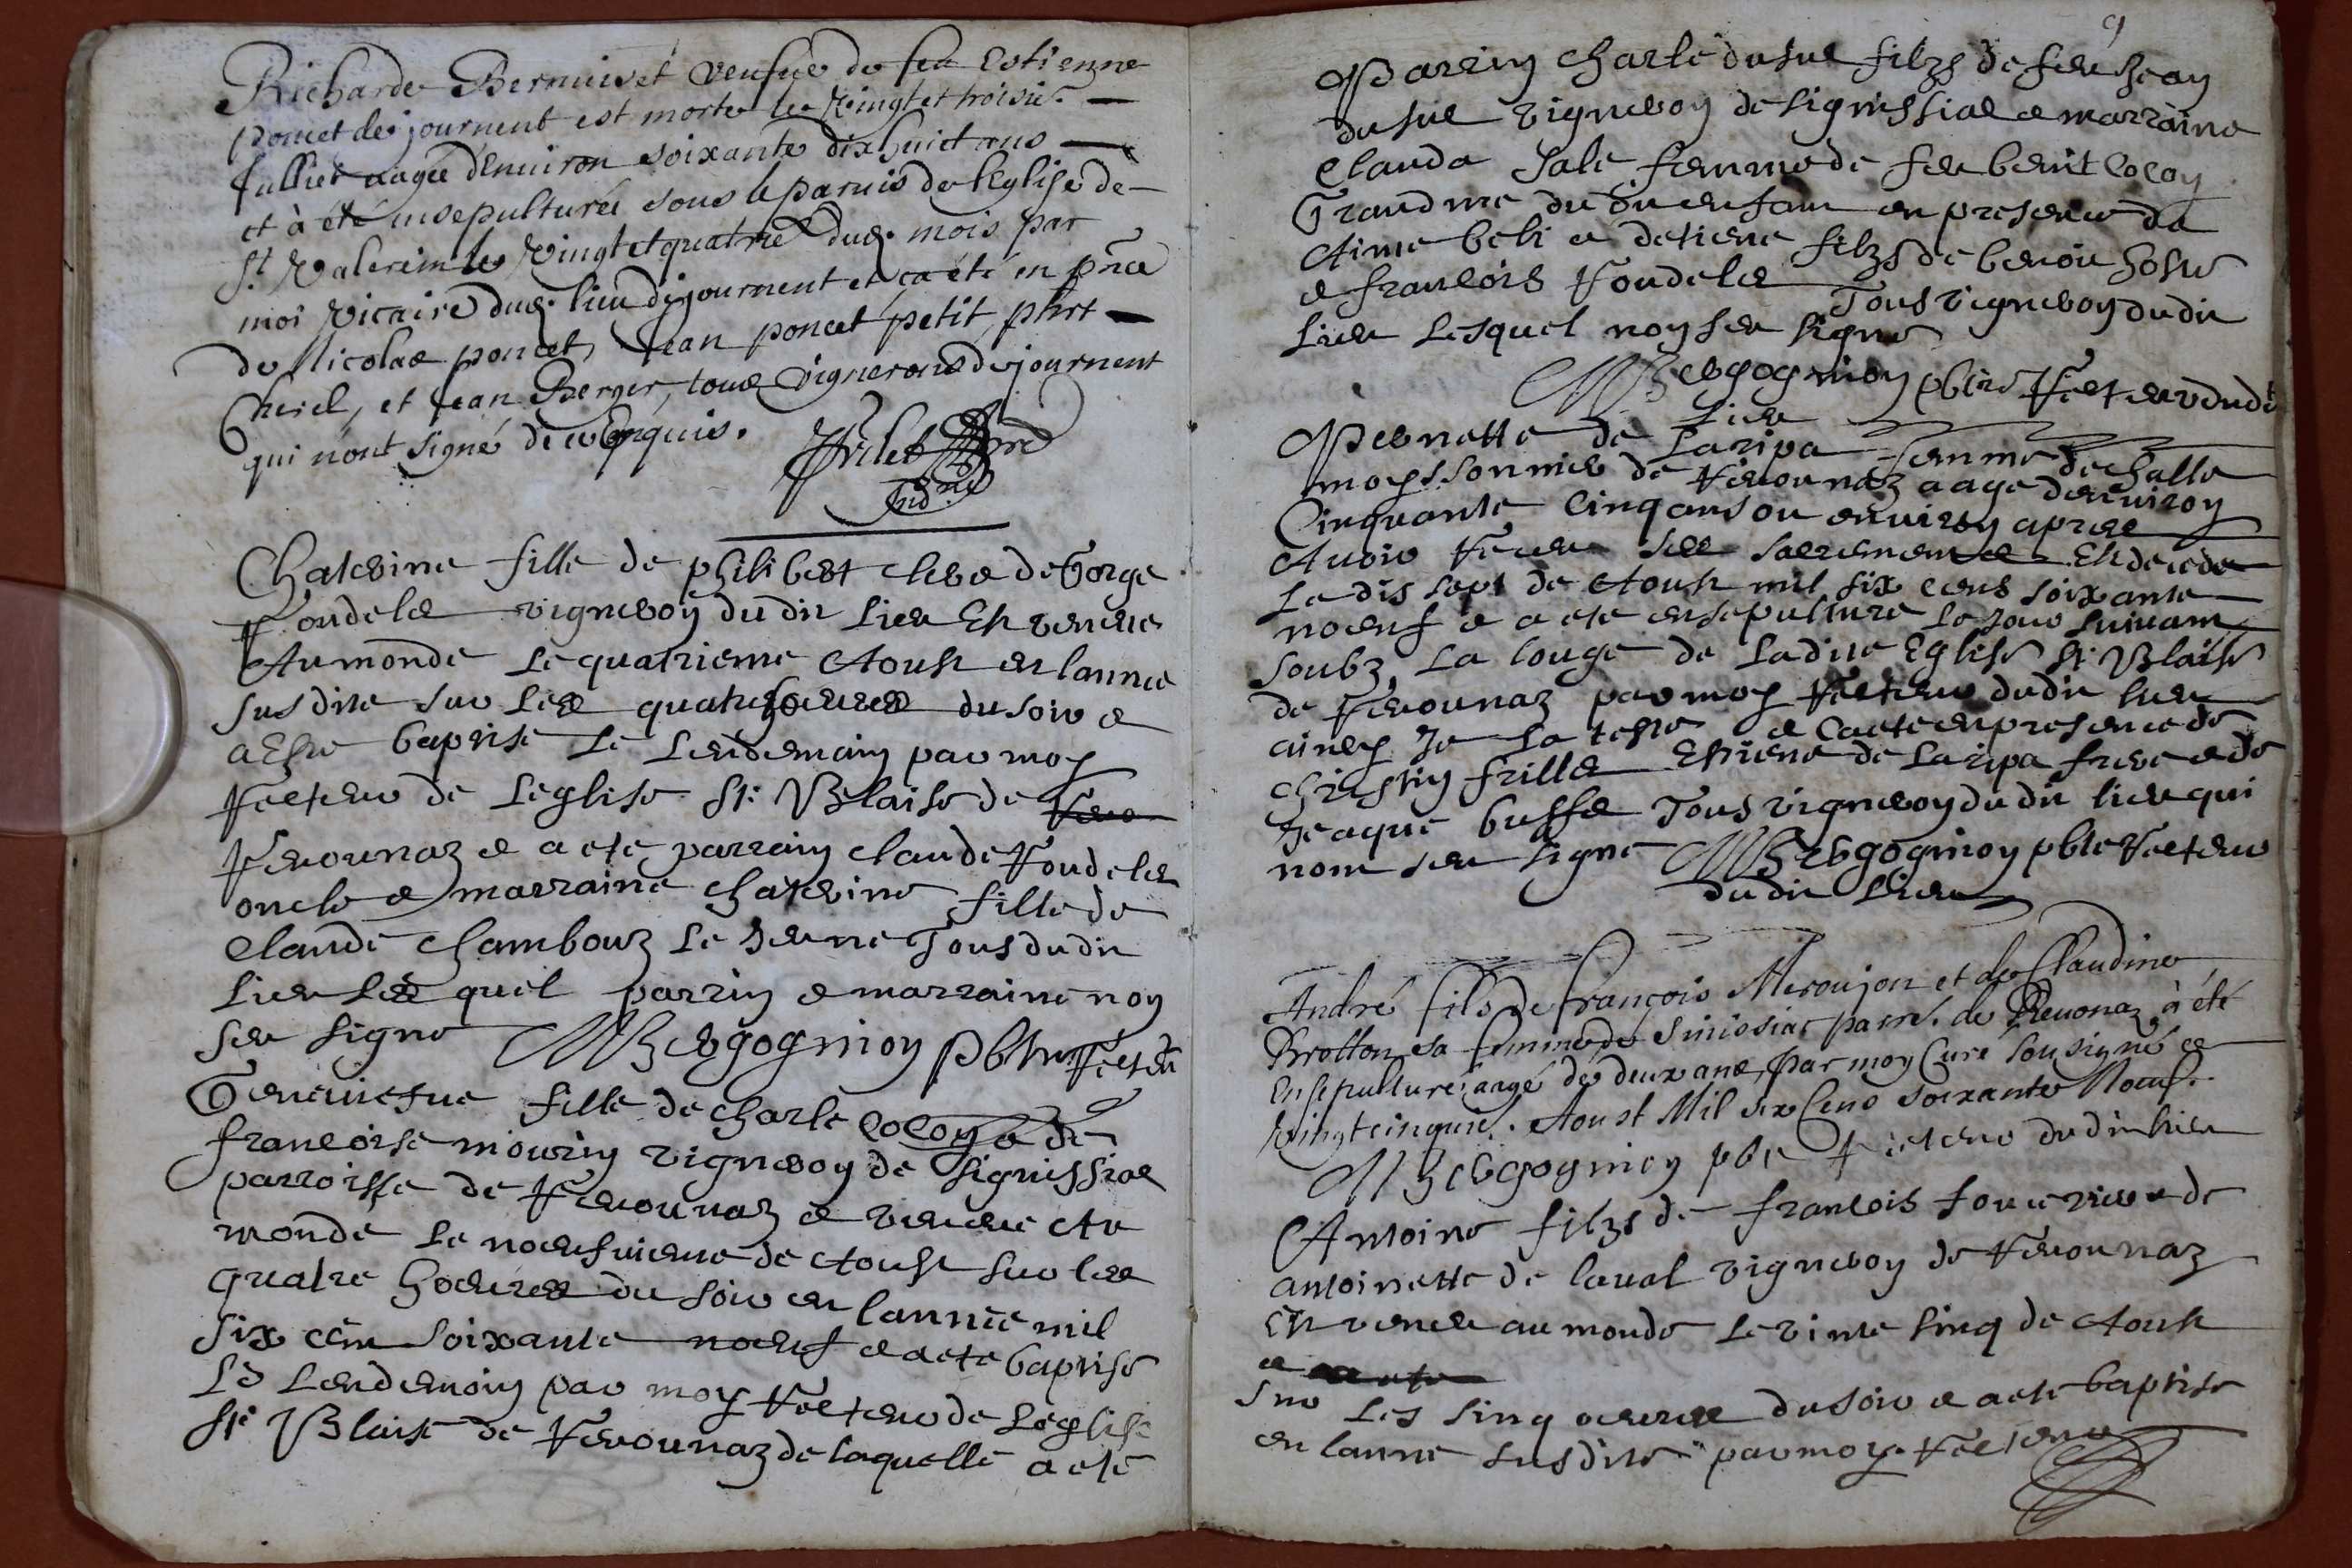 Richarde Bernuiset veufue de feu Estienne
poncet de journent est morte le vingt et troisie.
Julliet aagée d'enuiron soixante dix huict ans
et à été ensepulturée sous le paruis de l'Eglise de
St. Valerin le vingt et quatrie dud. mois par
moi vicaire dud. lieu de journent et ça été en pñce
de Nicolas poncet, Jean poncet petit, phrt
Cheuel, et Jean Berger, tous vignerons de journent
qui n'ont signé de ce enquis.
Catevine fille de philibert cleve de Gorge
Roudeles vigneron du dit lieu Est venue
Au monde Le quatrieme Aoust en lannee
susdite sur Les quatre hoeures du soir e
a Estre baptise Le Lendemain par moy
Recteur de Leglise St Blaise de
Reuounaz e a ete parrain claude Roudeles
oncle e marraine Catevine fille de
Claude Chambouz Le Jeune Tous du dit
Lieu Les quel parrin e marraine non
seu signe M Bergognion pbtre Recteur
Geneuiefue fille de charle cocon e de
francoise mourin vigneron de signissiae
parroisse de Reuounaz e venue Au
monde Le noeufuieme de Aoust sur les
quatre hoeures du soir en lannee mil
six cens soixante noeuf e a ete baptise
Le Lendemain par moy Recteur de Leglise
St Blaise de Reuounaz de laquelle a ete
9
Parrin charle dusue filzs de feu Jean
dusue vigneron de signissiae e marraine
Clauda Sale femme de feu benit cocon
Grandme du dit enfant en presence de
Aime beli e detiene filzs de benoit
e francois Roudeles Tous vigneron du dit
Lieu Lesquel non seu signe
M Bergognion pbtre Recteur du dit
Lieu
Pernette de Laripa femme de challe
moyssonnier de Reuounaz aage denuiron
Cinquante cinq ans ou enuiron apres
Auoir Receu ses sacrements Est decede
Le dis sept de Aoust mil six cens soixante
noeuf e a ete ensepulture Le Jour suiuant
soubz La louge de Ladite Eglise St Blaise
de Reuounaz par moy Recteur du dit lieu
ainsy Je La teste e Ca ete en presence de
christin frilles Etiene de Laripa frere e de
Jeaque busse Tous vigneron du dit lieu qui
nont seu signe M Bergognion pbtre Recteur
du dit Lieu
André fils de François Meroujon et de Claudine
Brotton sa femme de Sinissiat parre. de Reuonaz à été
Ensepulturé aagé de deux ans, par moy Curé sousigné ce
vingtcinquie. Aoust Mil six Cens soixante Noeuf.
M Bergognion pbtre Recteur du dit lieu
Antoine filzs de francois e de
antoinette de laual vigneron de Reuounaz
Est venu au monde Le vinte sinq de Aoust
e
sur Les sinq oeures du soir e a ete baptise
en lanne susdite par moy Recteur